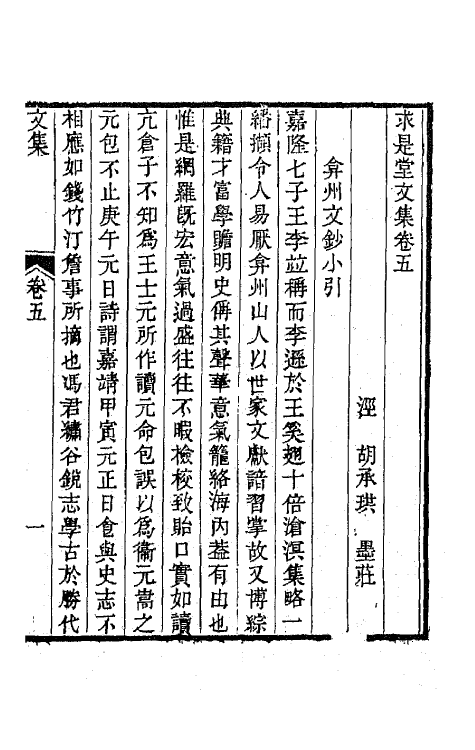 求是堂文集卷五
涇　胡承珙　墨莊
弇州文鈔小引
嘉隆七子王李並稱而李遜於王奚翅十倍滄溟集略一
繙擷令人易厭弇州山人以世家文獻諳習掌故又博綜
典籍才富學贍明史偁其聲華意氣籠絡海內葢有由也
惟是網羅旣宏意氣過盛往往不暇檢校致貽口實如讀
亢倉子不知爲王士元所作讀元命包誤以爲衞元嵩之
元包不止庚午元日詩謂嘉靖甲寅元正日食與史志不
相應如錢竹汀詹事所摘也馮君繡谷銳志學古於勝代
文集
卷五
一